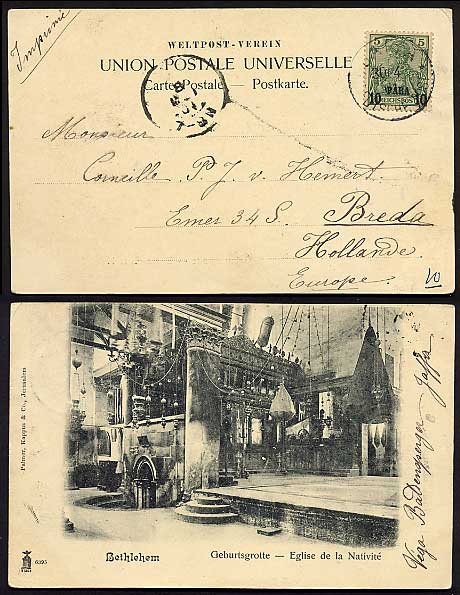 Imprimé
WELTPOST-VEREIN
UNION POSTALE UNIVERSELLE
Carte Postale — Postkarte.
5 5
PARA
10 REICHSPOST 10
Monsieur
Corneille P. J. v. Hemert.
Emer 34 S. Breda
Hollande.
Europe.
10
Palmer, Kappus & Co., Jerusalem
6395
Bethlehem
Geburtsgrotte — Eglise de la Nativité
Jaffa